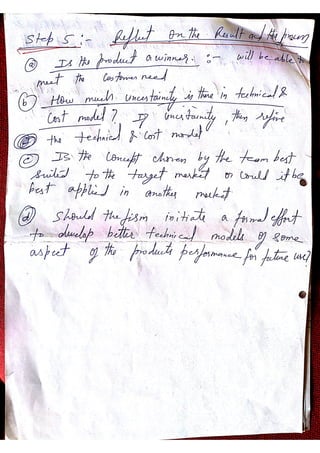 Step 5 :- Reflect on the Result and the process
(a) Is the product a winner. :- will be able to
meet the customer need
(b) How much uncertainity is there in technical &
cost model? If uncertainity, then refine
the technical & cost model
(c) Is the concept chosen by the team best
suited to the target market or could it be
best applied in another market
(d) Should the firm initiate a formal effort
to develop better technical models of some
aspect of the products performance for future use?